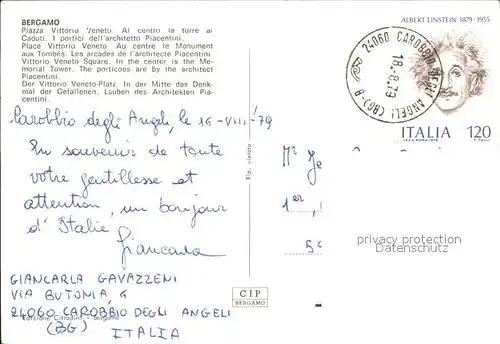 BERGAMO
Piazza Vittorio Veneto. Al centro la torre ai
Caduti. I portici dell'architetto Piacentini.
Place Vittorio Veneto Au centre le Monument
aux Tombés. Les arcades de l'architecte Piacentini
Vittorio Veneto Square. In the center is the Me-
morial Tower. The porticoes are by the architect
Piacentini.
Der Vittorio Veneto-Platz. In der Mitte das Denk-
mal der Gefallenen. Lauben des Architekter Pia-
centini.
Carobbio degli Angeli, le 16-VIII-'79
En souvenir de toute
votre gentillesse et
attention, un bonjour
d'Italie
Giancarla
GIANCARLA GAVAZZENI
VIA BUTONIA, 6
24060 CAROBBIO DEGLI ANGELI
(BG) ITALIA
Edizione Cittadini - Bergamo
Rip. vietata
CIP
BERGAMO
ALBERT EINSTEIN 1879-1955
24060 CAROBBIO DEGLI ANGELI (BG)-B
18-8.79
ITALIA 120
Mr Je
1er,
5
privacy protection
Datenschutz